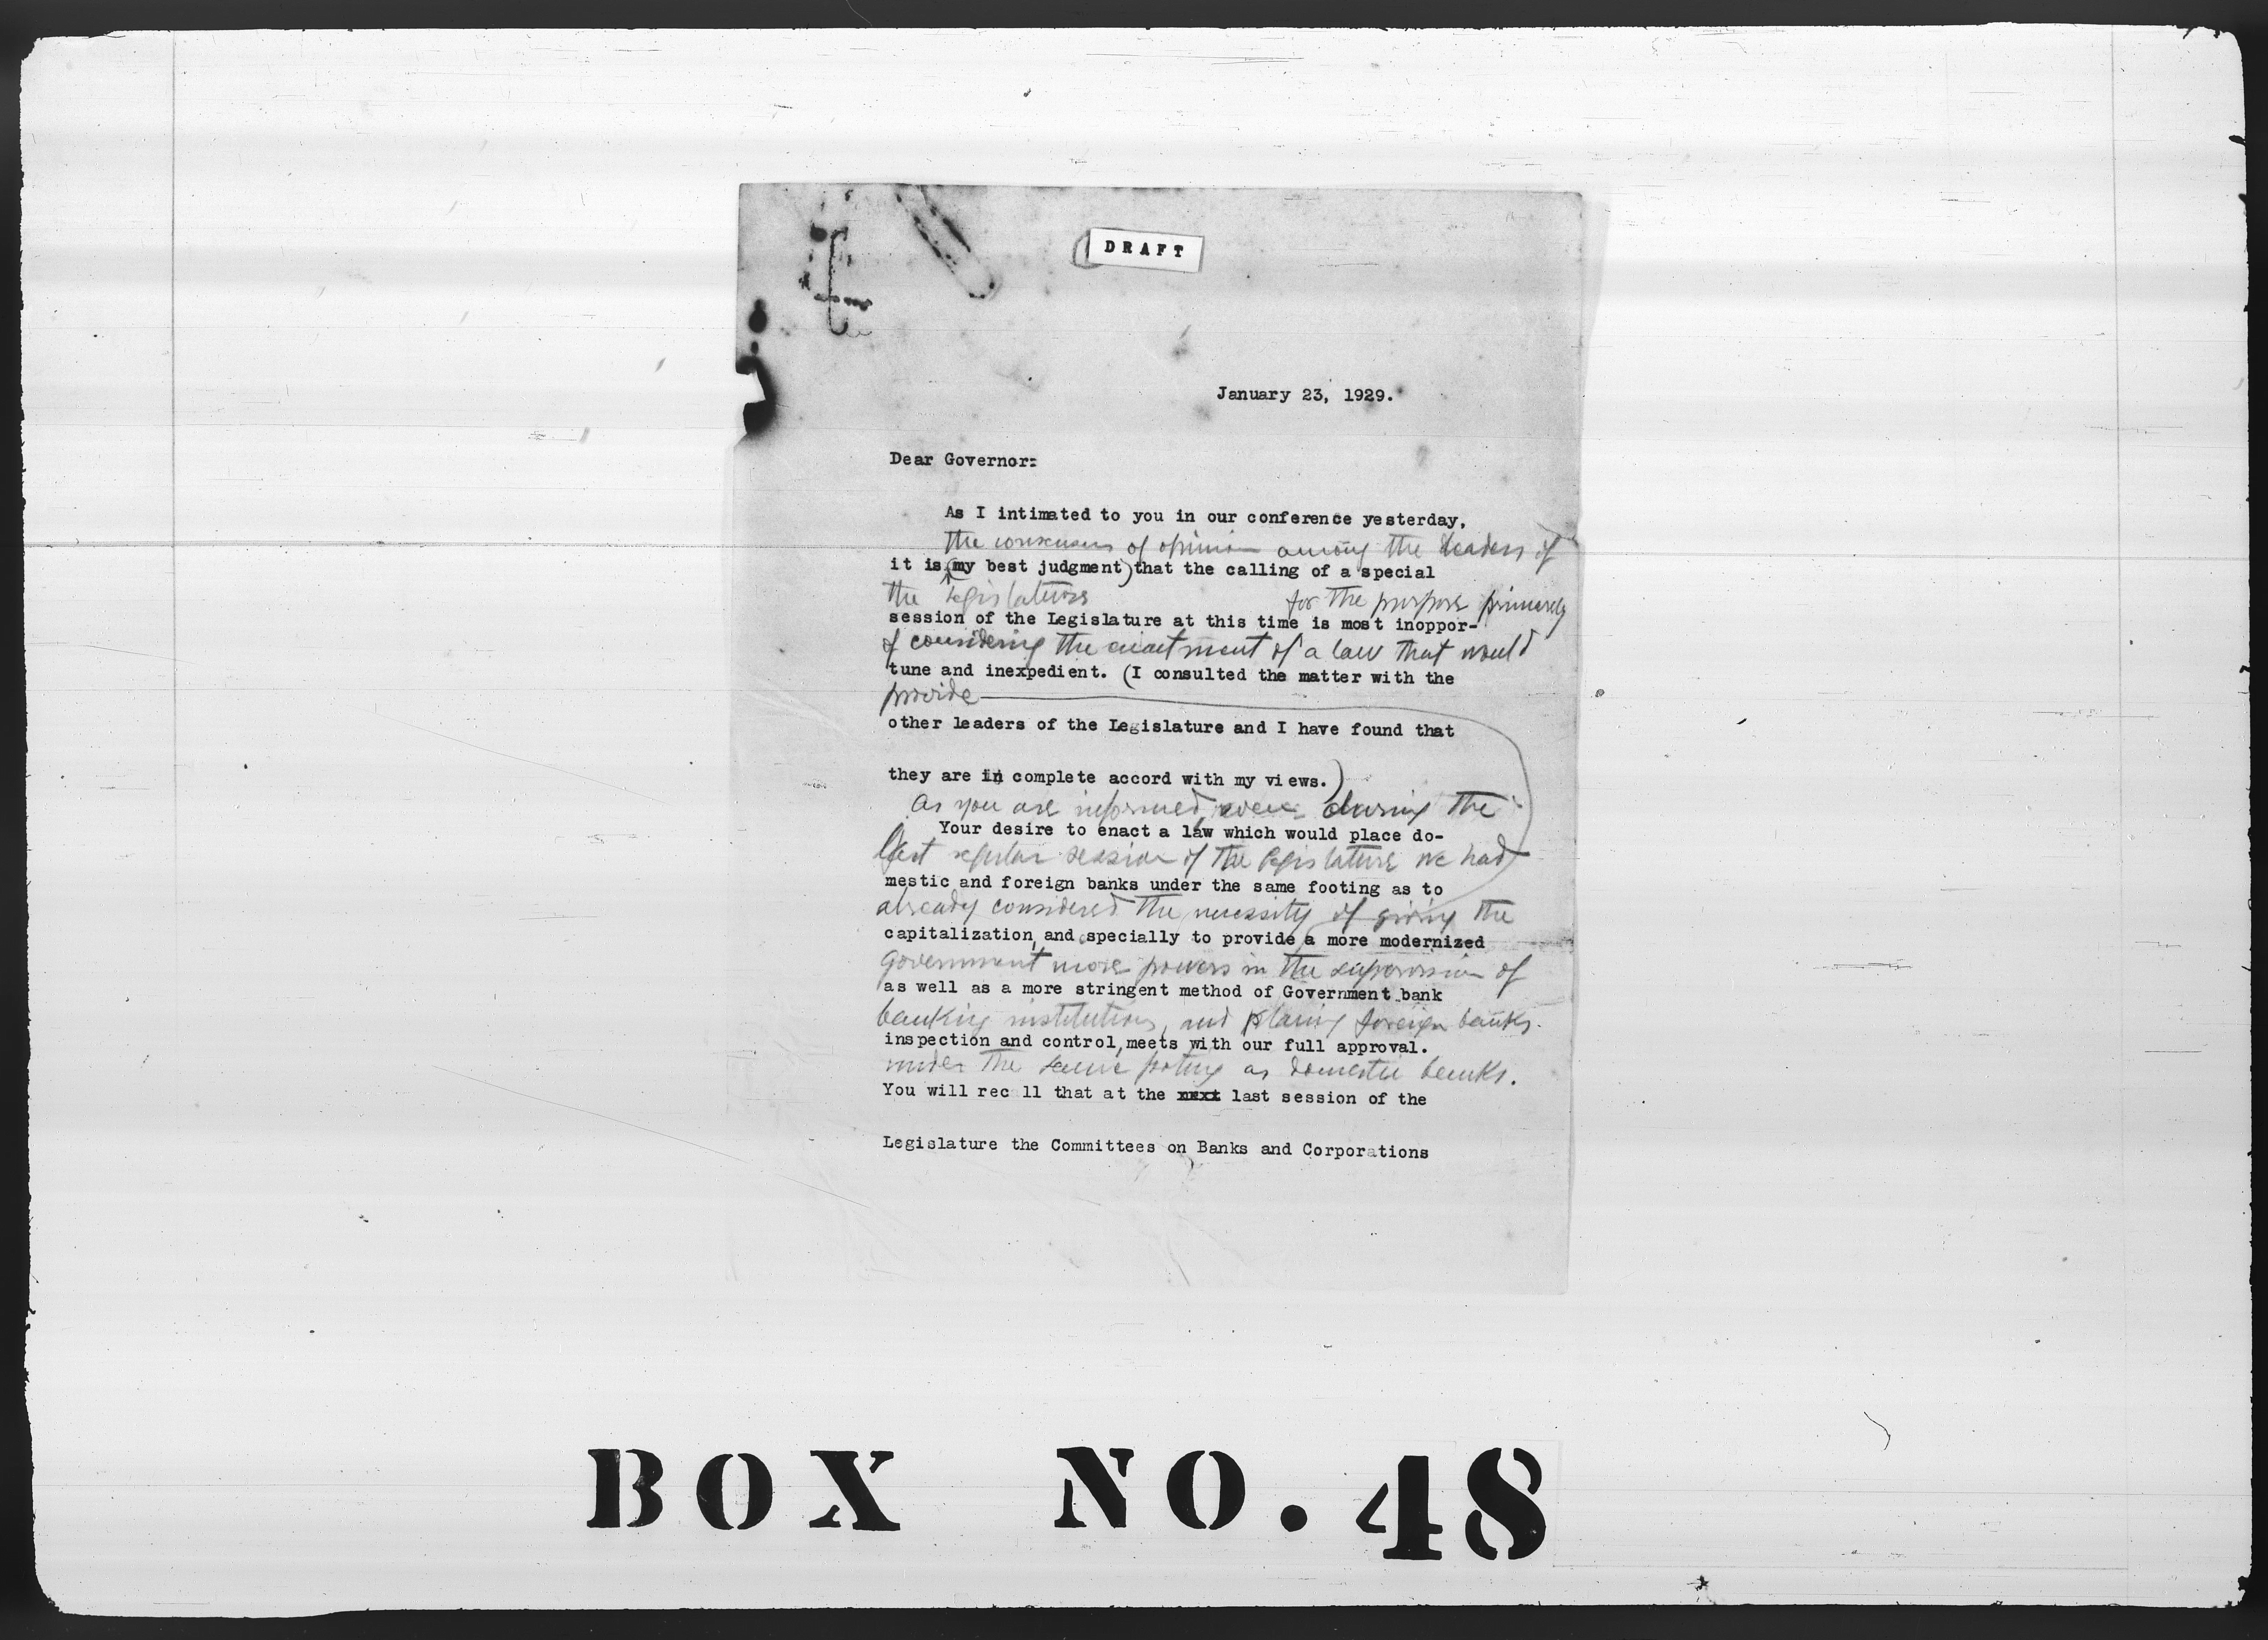 DRAFT
January 23, 1929.
Dear Governor:
As I intimated to you in our conference yesterday,
the consensus of opinion among the leaders of
it is (my best judgment) that the calling of a special
the Legislature
for the purpose primarily
session of the Legislature at this time is most inoppor-
of considering the enactment of a law that would
tune and inexpedient. (I consulted the matter with the
provide
other leaders of the Legislature and I have found that
they are in complete accord with my views.)
As you are informed, even during the
Your desire to enact a law which would place do-
last regular session of the Legislature we had
mestic and foreign banks under the same footing as to
already considered the necessity of giving the
capitalization, and specially to provide a more modernized
Government more powers in the supervision of
as well as a more stringent method of Government bank
banking institutions, and placing foreign banks
inspection and control, meets with our full approval.
under the same footing as domestic banks.
You will rec ll that at the next last session of the
Legislature the Committees on Banks and Corporations
BOX NO. 48